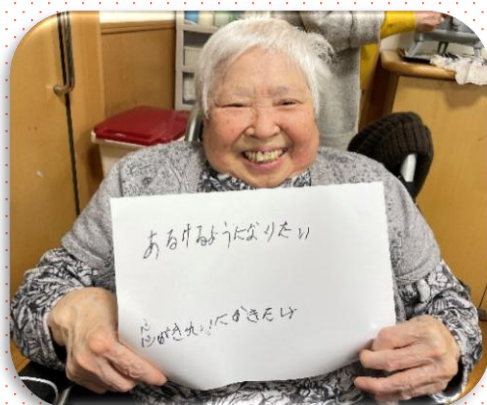 あるけるようになりたい
がきれいにかきたい